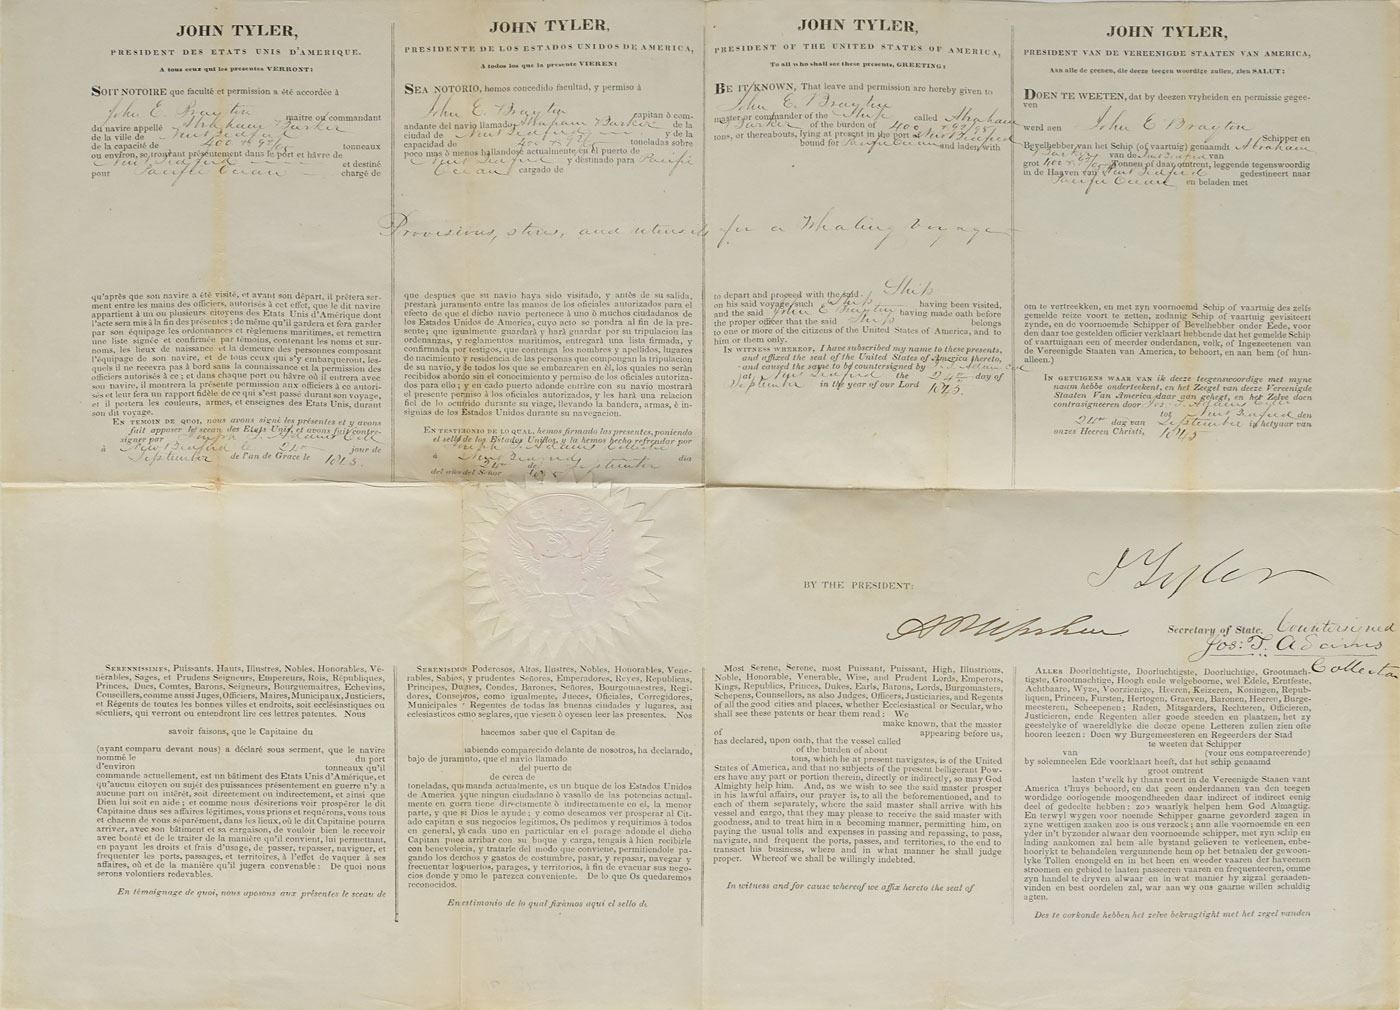 JOHN TYLER,
PRESIDENT DES ETATS UNIS D'AMERIQUE.
A tous ceux qui les presentes VERRONT:
SOIT NOTOIRE que faculté et permission a été accordée à
John E. Brayton maitre ou commandant
du navire appellé Abraham Barker
de la ville de New Bedford
de la capacité de 400 tonneaux
ou environ, se trouvant présentement dans le port et hâvre de
New Bedford et destiné
pour Pacific Ocean chargé de
qu'après que son navire a été visité, et avant son départ, il prêtera ser-
ment entre les mains des officiers, autorisés à cet effet, que le dit navire
appartient à un ou plusieurs citoyens des Etats Unis d'Amérique dont
l'acte sera mis à la fin des présentes; de même qu'il gardera et fera garder
par son équipage les ordonnances et réglemens maritimes, et remettra
une liste signée et confirmée par témoins, contenant les noms et sur-
noms, les lieux de naissance et la demeure des personnes composant
l'équipage de son navire, et de tous ceux qui s'y embarqueront, les-
quels il ne recevra pas à bord sans la connaissance et la permission des
officiers autorisés à ce; et dans chaque port ou hâvre où il entrera avec
son navire, il montrera la présente permission aux officiers à ce autori-
sés et leur fera un rapport fidèle de ce qui s'est passé durant son voyage,
et il portera les couleurs, armes, et enseignes des Etats Unis, durant
son dit voyage.
EN TEMOIN DE QUOI, nous avons signé les présentes et y avons
fait apposer le sceau des Etats Unis, et avons fait contre-
signer par Joseph T. Adams Coll
à New Bedford le 24 jour de
September de l'an de Grace le 1843.
JOHN TYLER,
PRESIDENTE DE LOS ESTADOS UNIDOS DE AMERICA,
A todos los que la presente VIEREN:
SEA NOTORIO, hemos concedido facultad, y permiso à
John E. Brayton capitan ò com-
andante del navio llamado Abraham Barker de la
ciudad de New Bedford y de la
capacidad de 400 toneladas sobre
poco mas ò menos hallandose actualmente en el puerto de
New Bedford y destinado para Pacific
Ocean cargado de
Provisions, stores, and utensils for a Whaling Voyage
que despues que su navio haya sido visitado, y antes de su salida,
prestará juramento entre las manos de los oficiales autorizados para el
efecto de que el dicho navio pertenece à uno ò muchos ciudadanos de
los Estados Unidos de America, cuyo acto se pondra al fin de la pre-
sente; que igualmente guardará y hará guardar por su tripulacion las
ordenanzas, y reglamentos maritimos, entregará una lista firmada, y
confirmada por testigos, que contenga los nombres y apellidos, lugares
de nacimiento y residencia de las personas que compongan la tripulacion
de su navio, y de todos los que se embarcaren en él, los quales no serán
recibidos abordo sin el conocimiento y permiso de los oficiales autoriza-
dos para ello; y en cada puerto adonde entráre con su navio mostrará
el presente permiso à los oficiales autorizados, y les hará una relacion
fiel de lo ocurrido durante su viage, llevando la bandera, armas, è in-
signias de los Estados Unidos durante su navegacion.
EN TESTIONIO DE LO QUAL, hemos firmado las presentes, poniendo
el sello de los Estados Unidos, y la hemos hecho refrendar por
Joseph T. Adams Collector
à New Bedford dia
24 de September
del año del Señor 1843
JOHN TYLER,
PRESIDENT OF THE UNITED STATES OF AMERICA,
To all who shall see these presents, GREETING:
BE IT KNOWN, That leave and permission are hereby given to
John E. Brayton
master or commander of the Ship called Abraham
Barker of the burden of 400
tons, or thereabouts, lying at present in the port of New Bedford
bound for Pacific Ocean and laden with
to depart and proceed with the said Ship
on his said voyage, such Ship having been visited,
and the said John E Brayton having made oath before
the proper officer that the said Ship belongs
to one or more of the citizens of the United States of America, and to
him or them only.
IN WITNESS WHEREOF, I have subscribed my name to these presents,
and affixed the seal of the United States of America thereto,
and caused the same to be countersigned by J. T. Adams Col
at New Bedford the 24th day of
September in the year of our Lord 1843.
JOHN TYLER,
PRESIDENT VAN DE VEREENIGDE STAATEN VAN AMERICA,
Aan alle de geenen, die deeze teegen woordige zullen, zien SALUT:
DOEN TE WEETEN, dat by deezen vryheiden en permissie gegee-
ven
werd aen John E Brayton Schipper en
Bevelhebber van het Schip (of vaartuig) genaamdt Abraham
Barker van de New Bedford van
grot 400 Tonnen of daar omtrent, leggende tegenswoordig
in de Haaven van New Bedford gedestineert naar
Pacific Ocean en beladen met
om te vertreekken, en met zyn voornoemd Schip of vaartuig des zelfs
gemelde reize voort te zetten, zodanig Schip of vaartuig gevisiteert
zynde, en de voornoemde Schipper of Bevelhebber onder Eede, voor
den daar toe gestelden officier verklaart hebbende dat het gemelde Schip
of vaartuigaan een of meerder onderdanen, volk, of Ingezeetenen van
de Vereenigde Staaten van America, to behoort, en aan hem (of hun-
alleen.)
IN GETUIGENS WAAR VAN ik deeze teegenswoordige met myne
naam hebbe onderteekent, en het Zeegel van deeze Vereenigde
Staaten Van America daar aan gehegt, en het Zelve doen
contrasigneeren door Jos. T. Adams
tot New Bedford den
24 dag van September in hetyaar van
onzes Heeren Christi, 1843
BY THE PRESIDENT:
J Tyler
A P Upshur Secretary of State. Countersigned
Jos: T. Adams
Collector
SERENNISSIMES, Puissants, Hauts, Illustres, Nobles, Honorables, Vé-
nérables, Sages, et Prudens Seigneurs, Empereurs, Rois, Républiques,
Princes, Ducs, Comtes, Barons, Seigneurs, Bourguemaitres, Echevins,
Conseillers, comme aussi Juges, Officiers, Maires, Municipaux, Justiciers,
et Régents de toutes les bonnes villes et endroits, soit ecclésiastiques ou
séculiers, qui verront ou entendront lire ces lettres patentes. Nous
savoir faisons, que le Capitaine du
(ayant comparu devant nous) a déclaré sous serment, que le navire
nommé le du port
d'environ tonneaux qu'il
commande actuellement, est un bâtiment des Etats Unis d'Amérique, et
qu'aucun citoyen ou sujet des puissances présentement en guerre n'y a
aucune part ou intérêt, soit directement ou indirectement, et ainsi que
Dieu lui soit en aide; et comme nous désirerions voir prospérer le dit
Capitaine dans ses affaires légitimes, vous prions et requérons, vous tous
et chacun de vous séparément, dans les lieux, où le dit Capitaine pourra
arriver, avec son bâtiment et sa cargaison, de vouloir bien le recevoir
avec bonté et de le traiter de la manière qu'il convient, lui permettant,
en payant les droits et frais d'usage, de passer, repasser, naviguer, et
frequenter les ports, passages, et territoires, à l'effet de vaquer à ses
affaires, où et de la manière qu'il jugera convenable: De quoi nous
serons volontiers redevables.
En témoignage de quoi, nous aposons aux présentes le sceau de
SERENISIMOS Poderosos, Altos, Ilustres, Nobles, Honorables, Vene-
rables, Sabios, y prudentes Señores, Emperadores, Reyes, Republicas,
Principes, Duques, Condes, Barones, Señores, Bourgomaestres, Regi-
dores, Consejeros, como igualmente, Jueces, Oficiales, Corregidores,
Municipales y Regentes de todas las buenas ciudades y lugares, asi
eclesiasticos como seglares, que viesen ò oyesen leer las presentes. Nos
hacemos saber que el Capitan de
habiendo comparecido delante de nosotros, ha declarado,
bajo de juramnto, que el navio llamado
del puerto de
de cerca de
toneladas, qui manda actualmente, es un buque de los Estados Unidos
de America y que ningun ciudadano ò vasallo de las potencias actual-
mente en gurra tiene directamente ò indirectamente en el, la menor
parte, y que si Dios le ayude; y como deseamos ver prosperar al Ci-
tado capitan e sus negocios legitimos, Os pedimos y requrimos à todos
en general, yà cada uno en particular en el parage adonde el dicho
Capitan puea arribar con su buque y carga, tengais à bien recibirle
con benevolecia, y tratarle del modo que conviene, permitiendole pa-
gando los derchos y gastos de costumbre, pasar, y repasar, navegar y
frecuentar lospuerios, parages, y territorios, à fin de evacuar sus nego-
cios donde y omo le parezca conveniente. De lo que Os quedaremos
reconocidos.
En estimonio de lo qual fixàmos aqui el sello de
Most Serene, Serene, most Puissant, Puissant, High, Illustrious,
Noble, Honorable, Venerable, Wise, and Prudent Lords, Emperors,
Kings, Republics, Princes, Dukes, Earls, Barons, Lords, Burgomasters,
Schepens, Counsellors, as also Judges, Officers, Justiciaries, and Regents
of all the good cities and places, whether Ecclesiastical or Secular, who
shall see these patents or hear them read: We
make known, that the master
of appearing before us,
has declared, upon oath, that the vessel called
of the burden of about
tons, which he at present navigates, is of the United
States of America, and that no subjects of the present belligerant Pow-
ers have any part or portion therein, directly or indirectly, so may God
Almighty help him. And, as we wish to see the said master prosper
in his lawful affairs, our prayer is, to all the beforementioned, and to
each of them separately, where the said master shall arrive with his
vessel and cargo, that they may please to receive the said master with
goodness, and to treat him in a becoming manner, permitting him, on
paying the usual tolls and expenses in passing and repassing, to pass,
navigate, and frequent the ports, passes, and territories, to the end to
transact his business, where and in what manner he shall judge
proper. Whereof we shall be willingly indebted.
In witness and for cause whereof we affix hereto the seal of
ALLES Doorluchtigste, Doorluchtige, Doorluchtige, Grootmach-
tigste, Grootmachtige, Hoogh ende welgeboorne, wel Edele, Ernfeste,
Achtbaare, Wyze, Voorzienige, Heeren, Keizeren, Koningen, Repub-
liquen, Princen, Fursten, Hertogen, Graeven, Baronen, Heeren, Burge-
meesteren, Scheepenen; Raden, Mitsgarders, Rechteren, Officieren,
Justicieren, ende Regenten aller goede steeden en plaatzen, het zy
geestelyke of waereldlyke die deeze opene Letteren zullen zien ofte
hooren leezen: Doen wy Burgemeesteren en Regeerders der Stad
te weeten dat Schipper
van (voor ons compareerende)
by solemneelen Ede voorklaart heeft, dat het schip genaamd
groot omtrent
lasten t'welk hy thans voert in de Vereenigde Staaen vant
America t'huys behoord, en dat geen onderdaanen van den teegen
wordige oorlogende moogendheeden daar indirect of indirect eenig
deel of gedeelte hebben: zoo waarlyk helpen hem God Almagtig.
En terwyl wygen voor noemde Schipper gaarne gevorderd zagen in
zyne wettigen zaaken zoo is ons verzock; ann alle voornoemde en een
yder in't byzonder alwaar den voornoemde schipper, met zyn schip en
lading aankomen zal hem alle bystand gelieven te verleenen, enbe-
hoorlykt te behandelen vergunnende hem op het betaalen der gewoon-
lyke Tollen enongeld en in het heen en weeder vaaren der haveenen
stroomen en gebied te laaten passeeren vaaren en frequenteeren, omme
zyn handel te dryven alwaar en in wat manier hy zigzal geraaden-
vinden en best oordelen zal, war aan wy ons gaarne willen schuldig
agten.
Des te oorkonde hebben het zelve bekragtight met het zegel vanden